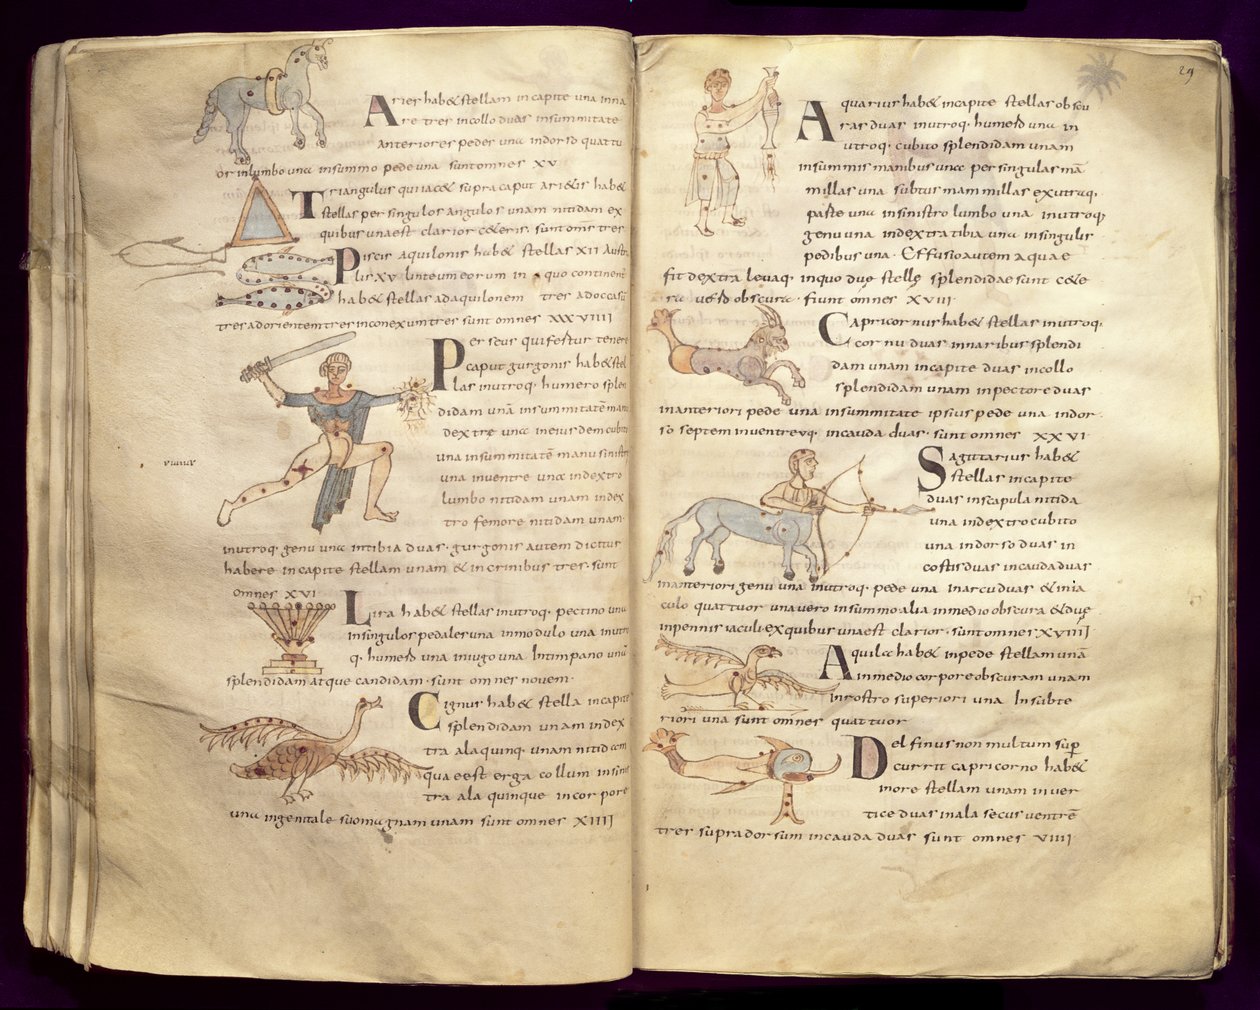 Equus hab& stellam in capite una in na
re tres in collo duas in summitate
anteriores pedes una in dorso quattu
or in lumbo una in summo pede una sunt omnes XV
Triangulus qui iac& supra caput ari&is hab&
stellas per singulos angulos unam nitidam ex
quibus una est clarior c&eris. sunt omnes tres
Piscis aquilonis hab& stellas XII Austra
lis XV linteum eorum in quo continent
hab& stellas ad aquilonem tres ad occasū
tres ad orientem tres in conexum tres sunt omnes XXXVIIII
Perseus qui fertur tenere
caput gurgonis hab& stel
las in utroq. humero splen
didam unā in summitatē man
dextre una in eiusdem cubiti
una in summitatē manu sinistre
una in ventre una in dextro
lumbo nitidam unam in dex
tro femore nitidam unam.
in utroq. genu una in tibia duas. gurgonis autem dicitur
habere in capite stellam unam & in crinibus tres. sunt
omnes XVI
Lira hab& stellas in utroq. pectino una
in singulos pedales una in modulo una in utro
q. humero una in iugo una In timpano unā
splendidam atque candidam. sunt omnes novem.
Cignus hab& stella in capite
splendidam unam in dex
tra ala quinq. unam nitidam
qua eest erga collum in sinis
tra ala quinque in corpore
una in genitale suo magnam unam sunt omnes XIIII
29
Aquarius hab& in capite stellas obscu
ras duas in utroq. humero una in
utroq. cubito splendidam unam
in summis manibus unae per singulas mā
millas una subtus mammillas ex utraq.
parte una in sinistro lumbo una in utroq.
genu una in dextra tibia una in singulis
pedibus una. Effusio autem aquae
fit dextra levaq. in quo due stelle splendidae sunt c&e
re vero obscure. fiunt omnes XVIII.
Capricornus hab& stellas in utroq.
cornu duas in naribus splendi
dam unam in capite duas in collo
splendidam unam in pectore duas
in anteriori pede una in summitate ipsius pede una in dor
so septem in ventre vq. in cauda duas. sunt omnes XXVI
Sagittarius hab&
stellas in capite
duas in scapula nitida
una in dextro cubito
una in dorso duas in
costis duas in cauda duas
in anteriori genu una in utroq. pede una in arcu duas & in ia
culo quattuor una vero in summo alia in medio obscura & due
in pennis iaculi. ex quibus una est clarior. sunt omnes XVIIII
Aquila hab& in pede stellam unā
in medio corpore obscuram unam
In rostro superiori una In subte
riori una sunt omnes quattuor
Delfinus non multum supr
currit capricorno hab&
in ore stellam unam in ver
tice duas in ala secus ventrē
tres supra dorsum in cauda duas sunt omnes VIIII